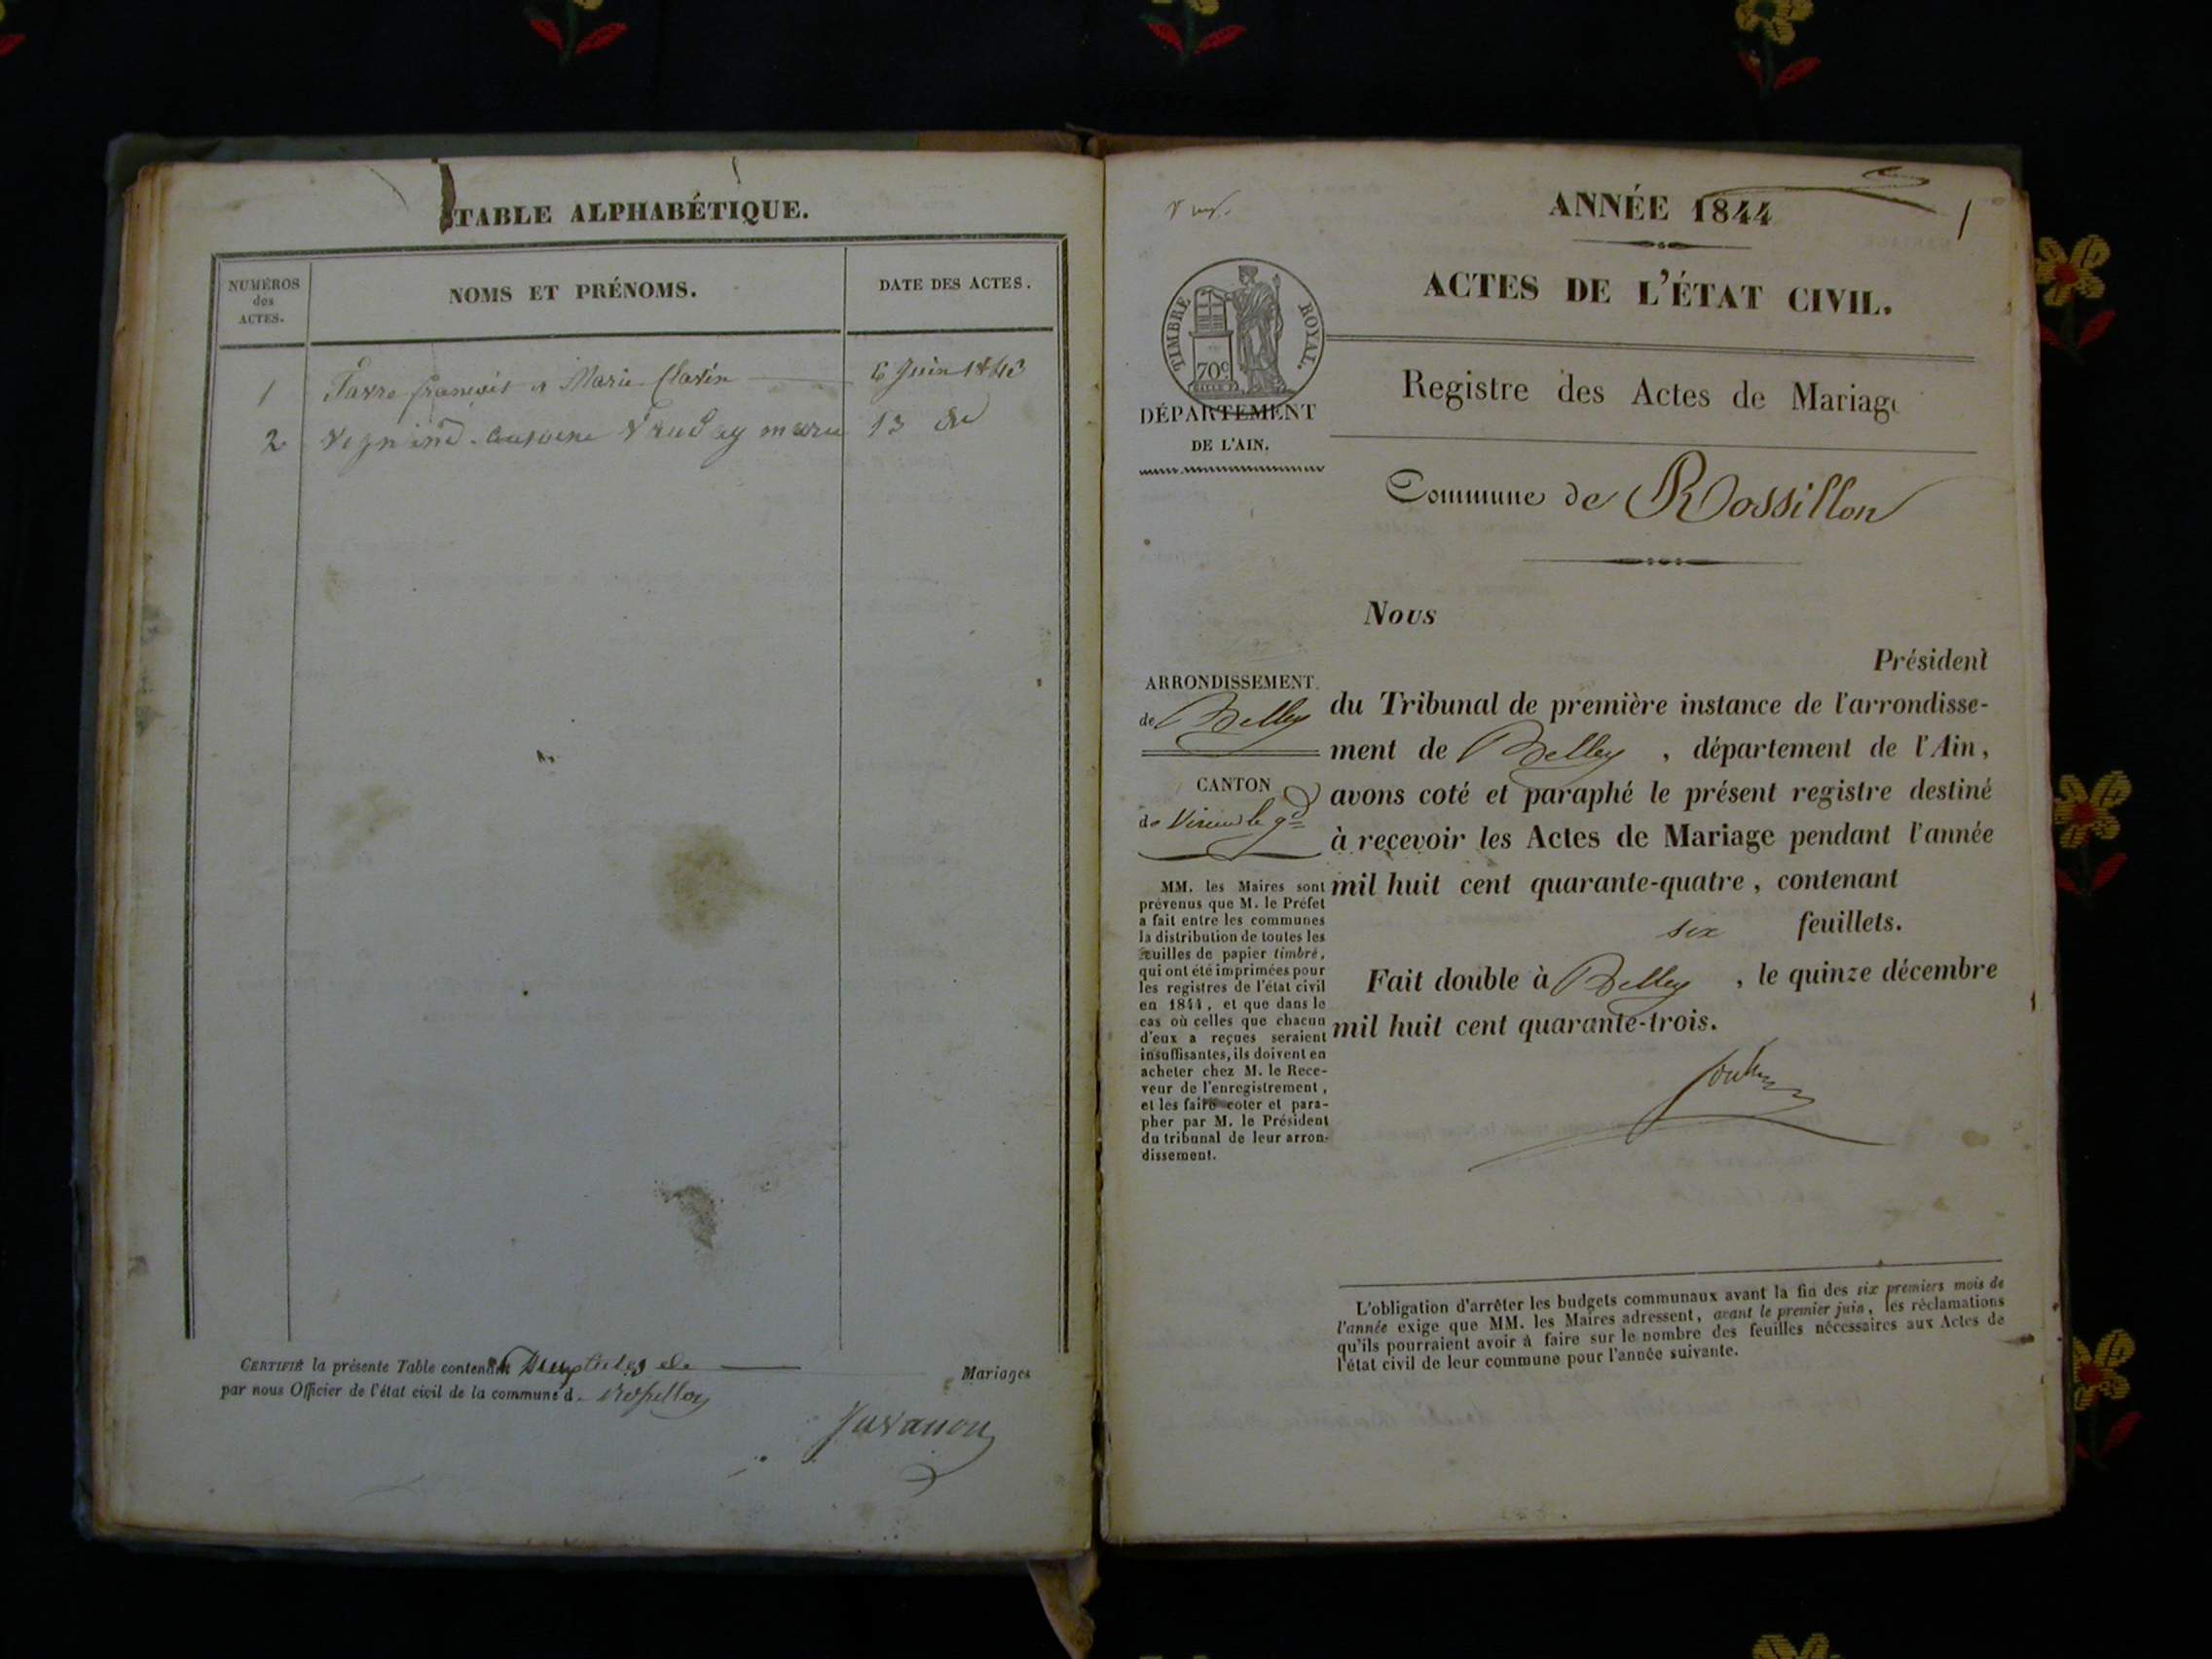 TABLE ALPHABÉTIQUE.
NUMÉROS
des
ACTES.
NOMS ET PRÉNOMS.
DATE DES ACTES.
1 Favre françois et Marie Clavin 6 Juin 1843
2 marie 13
CERTIFIÉ la présente Table contenant Mariages
par nous Officier de l'état civil de la commune d Rossillon
Juvanon
ANNÉE 1844
1
ACTES DE L'ÉTAT CIVIL.
TIMBRE ROYAL.
70c
DÉPARTEMENT
DE L'AIN.
Registre des Actes de Mariage
Commune de Rossillon
Nous
Président
du Tribunal de première instance de l'arrondisse-
ment de Belley, département de l'Ain,
avons coté et paraphé le présent registre destiné
à recevoir les Actes de Mariage pendant l'année
mil huit cent quarante-quatre, contenant
six feuillets.
Fait double à Belley, le quinze décembre
mil huit cent quarante-trois.
ARRONDISSEMENT
de Belley
CANTON
de Virieu le gd
MM. les Maires sont
prévenus que M. le Préfet
a fait entre les communes
la distribution de toutes les
feuilles de papier timbré,
qui ont été imprimées pour
les registres de l'état civil
en 1844, et que dans le
cas où celles que chacun
d'eux a reçues seraient
insuffisantes, ils doivent en
acheter chez M. le Rece-
veur de l'enregistrement,
et les faire coter et para-
pher par M. le Président
du tribunal de leur arron-
dissement.
L'obligation d'arrêter les budgets communaux avant la fin des six premiers mois de
l'année exige que MM. les Maires adressent, avant le premier juin, les réclamations
qu'ils pourraient avoir à faire sur le nombre des feuilles nécessaires aux Actes de
l'état civil de leur commune pour l'année suivante.